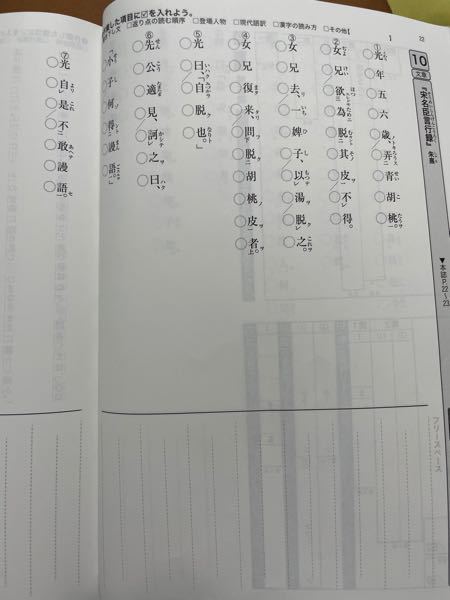 22
1
10
文章
『宋名臣言行録』 朱熹
▼本誌P.22〜23
した項目に☑を入れよう。
□返り点の読む順序 □登場人物 □現代語訳 □漢字の読み方 □その他【
①光年五六歳、弄青胡桃。
②女兄欲為脱其皮、不得。
③女兄去、一婢子以湯脱之。
④女兄復来、問脱胡桃皮者。
⑤光曰、「自脱也。」
⑥先公適見、訶之曰、
「小子何得謾語。」
⑦光自是不敢謾語。
フリースペース